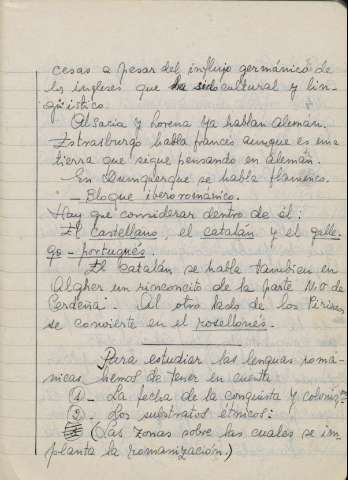 cesas a pesar del influjo germánico de
los ingleses que ha sido cultural y lin-
güistico.
Alsacia y Lorena ya hablan Alemán.
Estrasburgo habla francés aunque es una
tierra que sigue pensando en alemán.
En Dumquerque se habla flamenco.
- Bloque iberorománico.
Hay que considerar dentro de él:
El castellano, el catalán y el galle-
go - portugués.
El catalán se habla tambien en
Algher un rinconcito de la parte N.O de
Cerdeña. Al otro lado de los Pirineos
se convierte en el rosellonés.
Para estudiar las lenguas romá-
nicas hemos de tener en cuenta
1 - La fecha de la conquista y coloniz.
2. Los substratos étnicos:
(Las zonas sobre las cuales se im-
planta la romanización.)